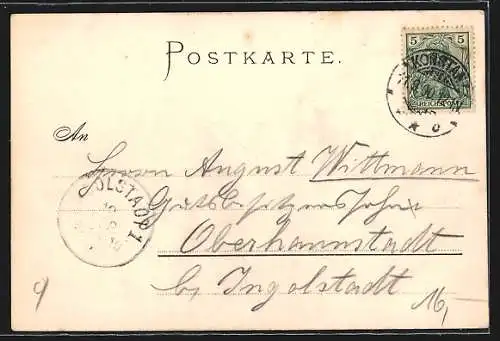 POSTKARTE.
5 5
KONSTANZ
REICHSPOST
An
Herrn August Wittmann
Gutsbesitzerssohn
Oberhaunstadt
b/ Ingolstadt
OLSTADT 1
16,-